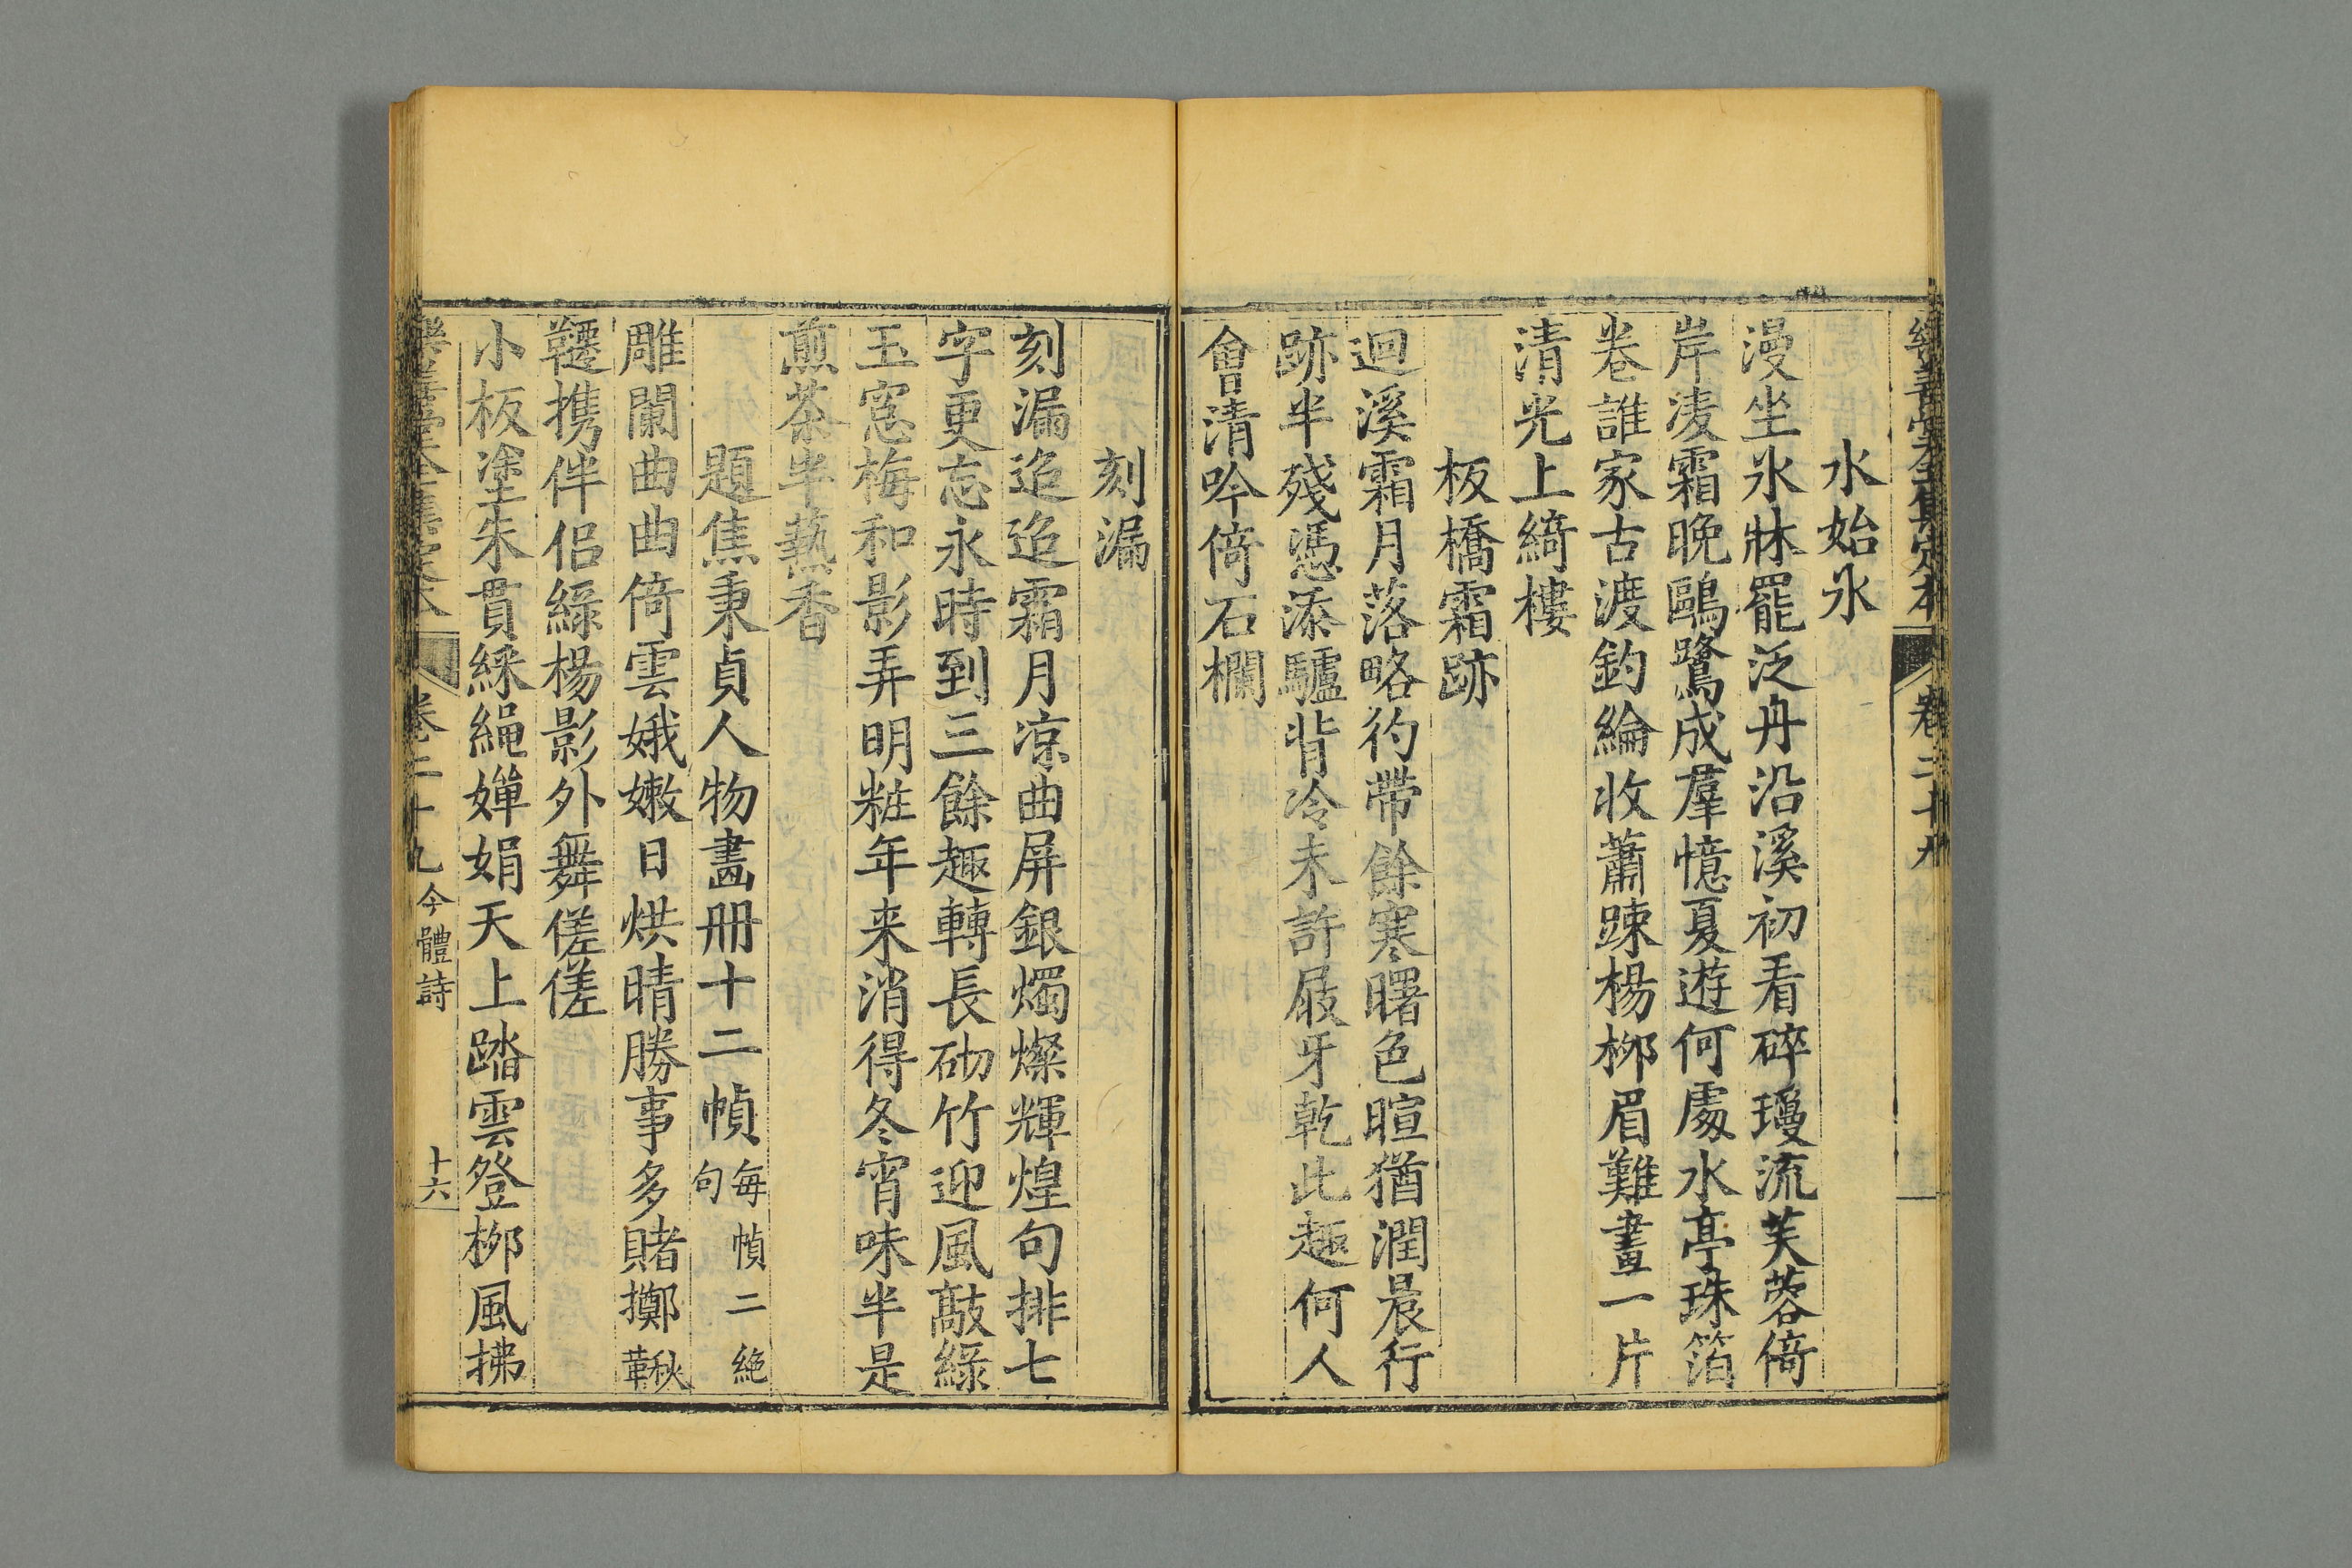 樂善堂全集定本 卷二十九
水始氷
漫坐氷牀罷泛舟沿溪初看碎瓊流芙蓉倚
岸凌霜晚鷗鷺成羣憶夏遊何處水亭珠箔
捲誰家古渡釣綸收蕭踈楊柳眉難畫一片
清光上綺樓
板橋霜跡
迴溪霜月落略彴帶餘寒曙色暄猶潤晨行
跡半殘憑添驢背冷未許屐牙乾此趣何人
會清吟倚石欄
刻漏
刻漏迢迢霜月凉曲屏銀燭燦輝煌句排七
字更忘永時到三餘趣轉長砌竹迎風敲綠
玉窓梅和影弄明粧年来消得冬宵味半是
煎茶半熱香
題焦秉貞人物畵册十二幀每幀二絶句
雕闌曲曲倚雲娥嫩日烘晴勝事多賭擲鞦
韆携伴侣綠楊影外舞傞傞
小板塗朱貫綵繩嬋娟天上踏雲登柳風拂
樂善堂全集定本 卷二十九 今體詩 十六